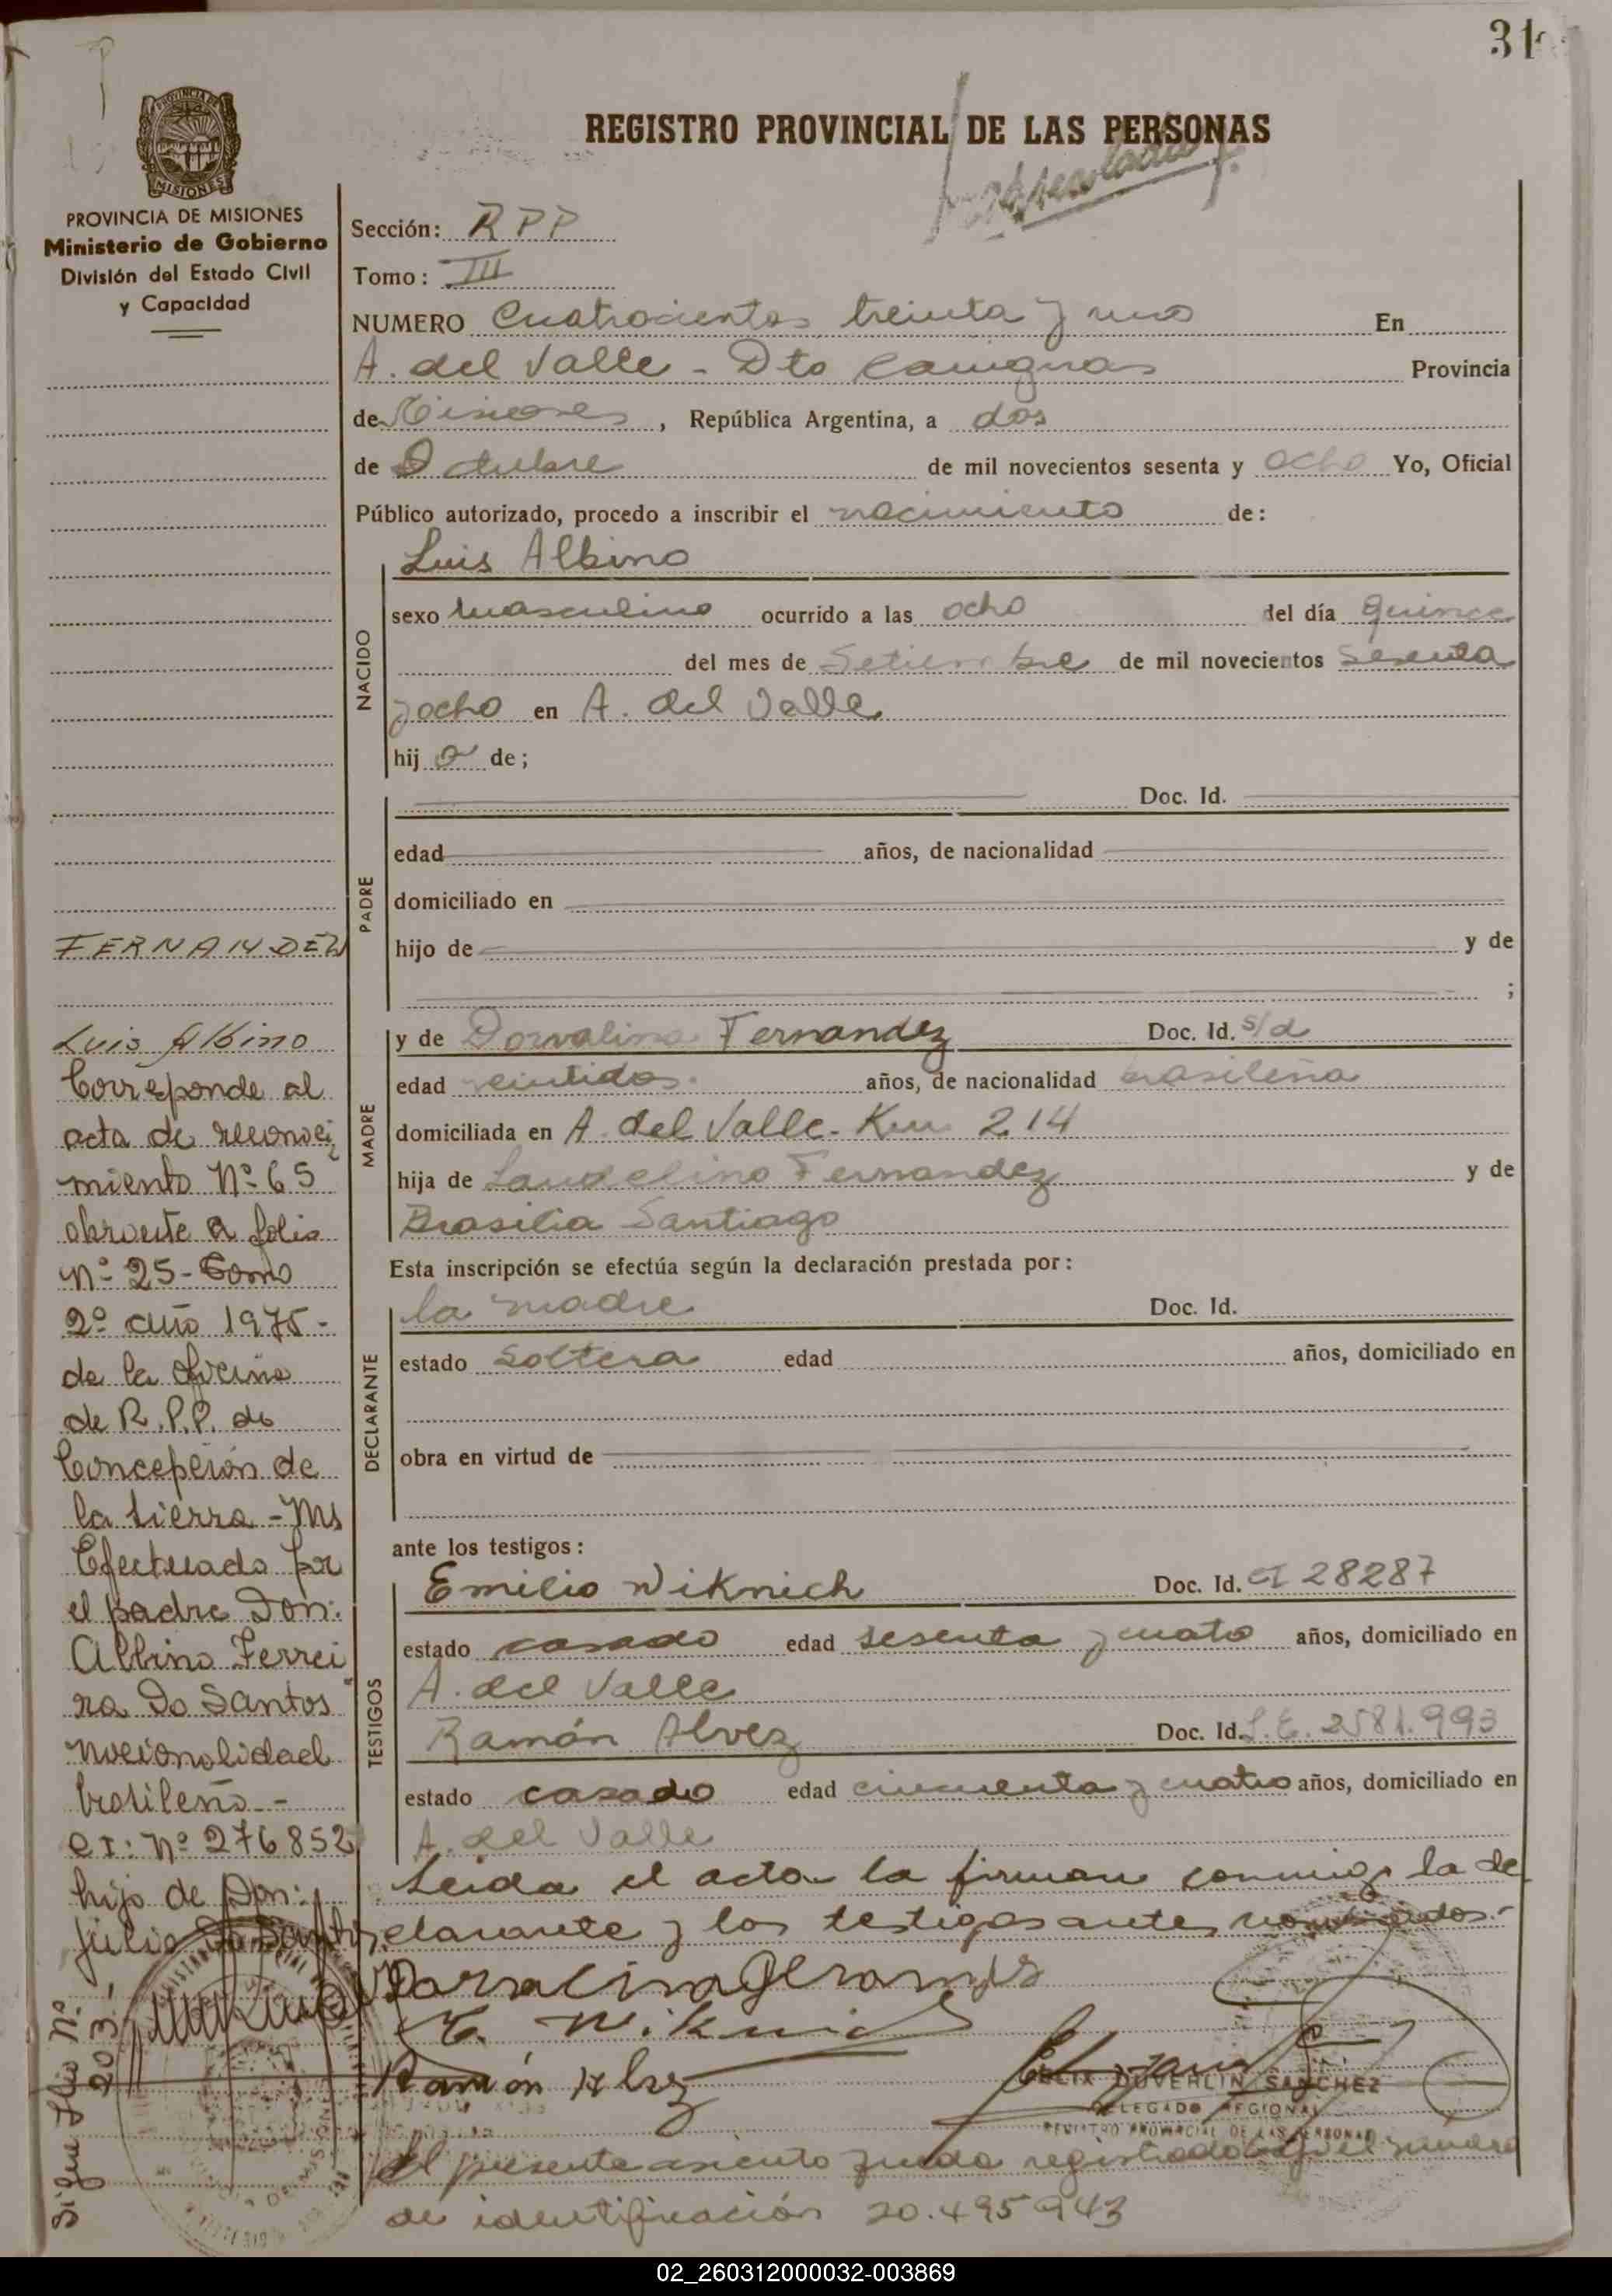 31
PROVINCIA DE MISIONES
PROVINCIA DE MISIONES
Ministerio de Gobierno
División del Estado Civil
y Capacidad
REGISTRO PROVINCIAL DE LAS PERSONAS
Sección: RPP
Tomo: III
NUMERO Cuatrocientos treinta y uno En
A. del Valle - Dto Cainguas Provincia
de Misiones, República Argentina, a dos
de Octubre de mil novecientos sesenta y ocho Yo, Oficial
Público autorizado, procedo a inscribir el nacimiento de:
NACIDO
Luis Albino
sexo masculino ocurrido a las ocho del día quince
del mes de Setiembre de mil novecientos sesenta
y ocho en A. del Valle
hijo de;
PADRE
Doc. Id.
edad años, de nacionalidad
domiciliado en
hijo de y de
;
MADRE
y de Dorvalina Fernandez Doc. Id. s/d
edad veintidos años, de nacionalidad brasileña
domiciliada en A. del Valle - Km 214
hija de Laudelino Fernandez y de
Brasilia Santiago
Esta inscripción se efectúa según la declaración prestada por:
DECLARANTE
la madre Doc. Id.
estado soltera edad años, domiciliado en
obra en virtud de
ante los testigos:
TESTIGOS
Emilio Wiknich Doc. Id. CI 28287
estado casado edad sesenta y cuato años, domiciliado en
A. del Valle
Ramón Alvez Doc. Id. L.E. 2581.993
estado casado edad cincuenta y cuatro años, domiciliado en
A. del Valle
Leida el acta la firman conmigo la de
clarante y los testigos antes nombrados.-
E. Wiknich
Ramón Alvez
FELIX DUVERLIN SANCHEZ
DELEGADO REGIONAL
REGISTRO PROVINCIAL DE LAS PERSONAS
El presente asiento queda registrado bajo el número
de identificación 20.495943
FERNANDEZ
Luis Albino
Corresponde al
acta de reconoci
miento Nº 65
obrante a folio
Nº 25 - Tomo
2º año 1975 -
de la oficina
de R.P.P. de
Concepción de
la Sierra - Ms
Efectuado por
el padre Don:
Albino Ferrei
ra Do Santos
nacionalidad
brasileño -
CI: Nº 276852
hijo de Don:
Julio Do Santos
Sigue folio Nº
203 -
02_260312000032-003869